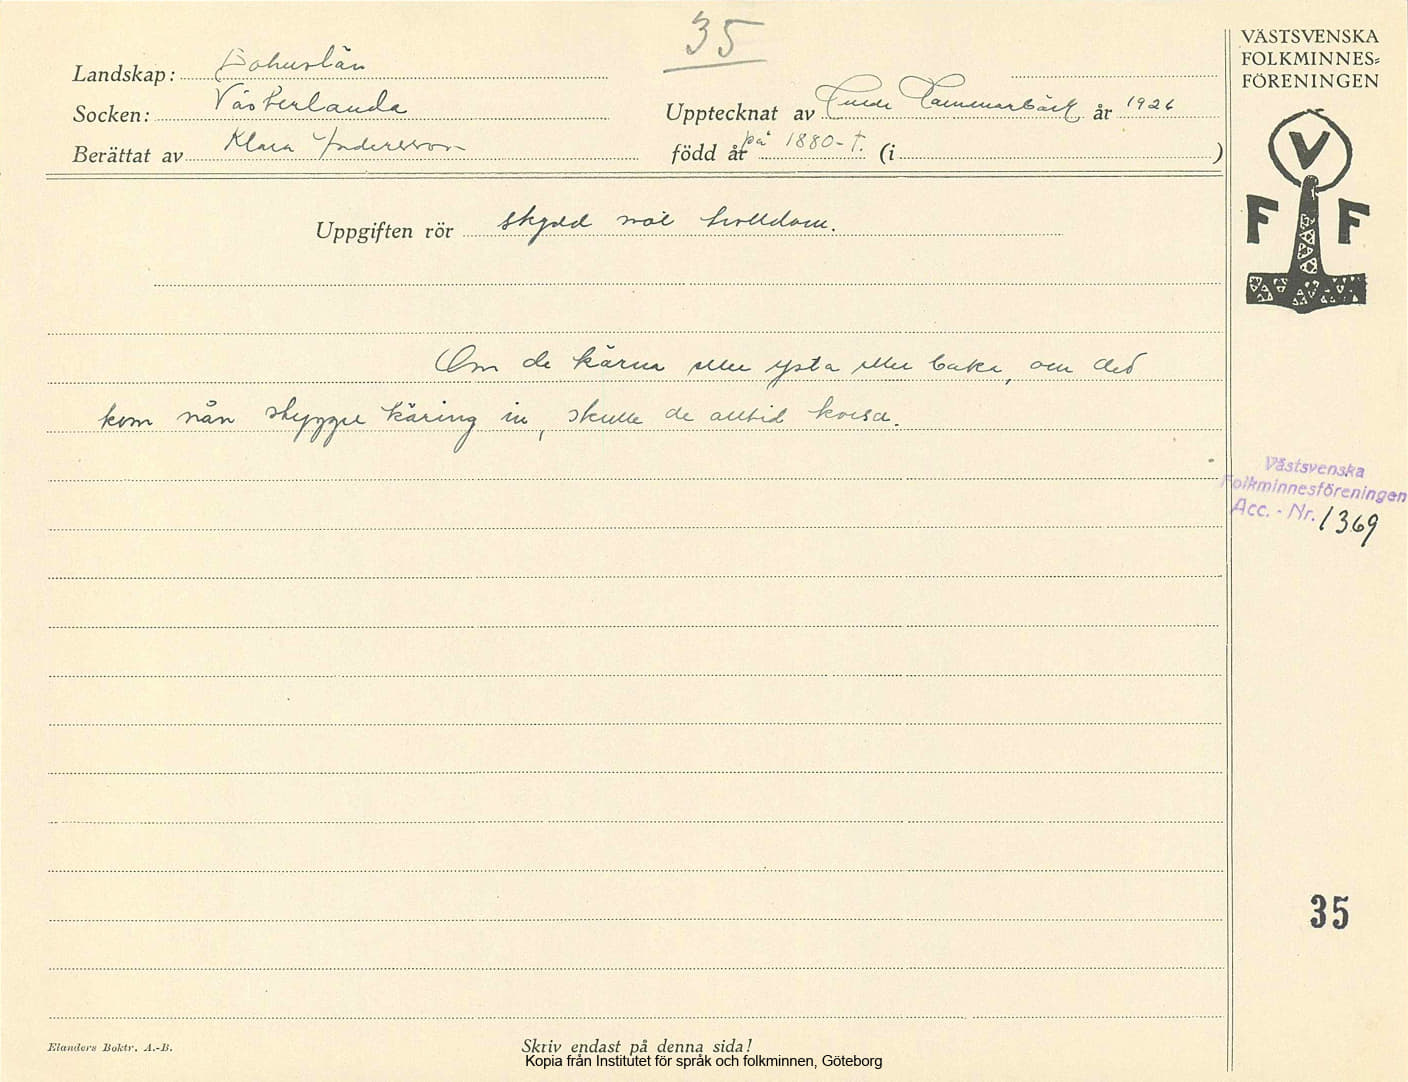 35
Landskap: Bohuslän
Socken: Västerlanda
Berättat av Klara Andersson
Upptecknat av Tulde Hammarbäck år 1926
född år på 1880-t. (i )
VÄSTSVENSKA
FOLKMINNES=
FÖRENINGEN
V
F F
Uppgiften rör skydd mot trolldom.
Om de kärna eller ysta eller baka, om det
kom nån skygger käring in, skulle de alltid korsa.
Västsvenska
Folkminnesföreningen
Acc. - Nr. 1369
35
Elanders Boktr. A.-B.
Skriv endast på denna sida!
Kopia från Institutet för språk och folkminnen, Göteborg